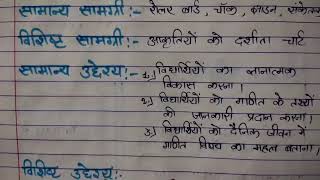 सामान्य सामग्री :- रोलर बोर्ड, चॉक, झाडन, संकेतक
विशिष्ट सामग्री :- आकृतियों को दर्शाता चार्ट
सामान्य उद्देश्य :- 1.) विद्यार्थियों का ज्ञानात्मक
विकास करना।
2.) विद्यार्थियों को गणित के तथ्यों
की जानकारी प्रदान करना।
3.) विद्यार्थियों को दैनिक जीवन में
गणित विषय का महत्व बताना।
विशिष्ट उद्देश्य :-